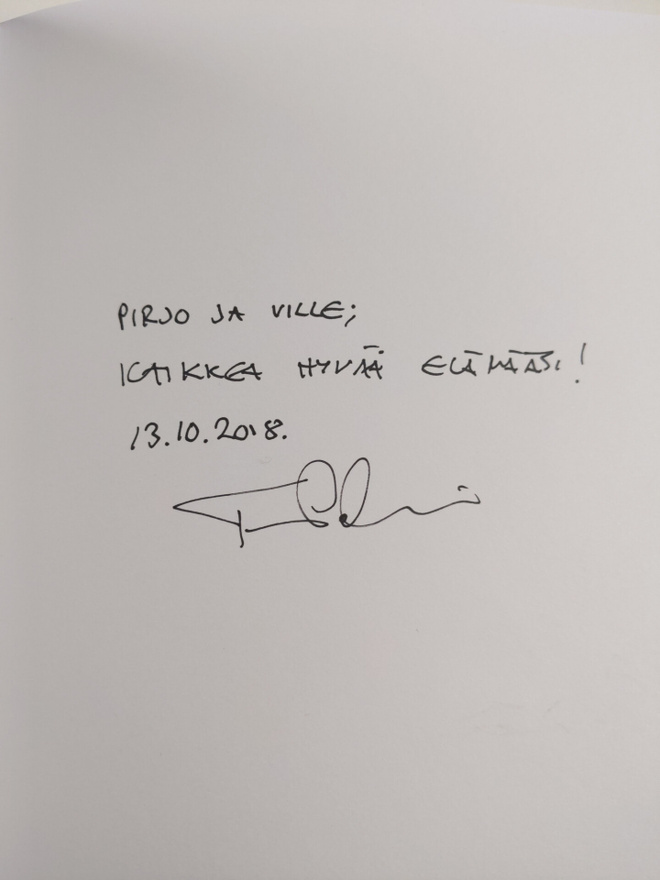 PIRJO JA VILLE;
KAIKKEA HYVÄÄ ELÄMÄÄSI!
13.10.2018.